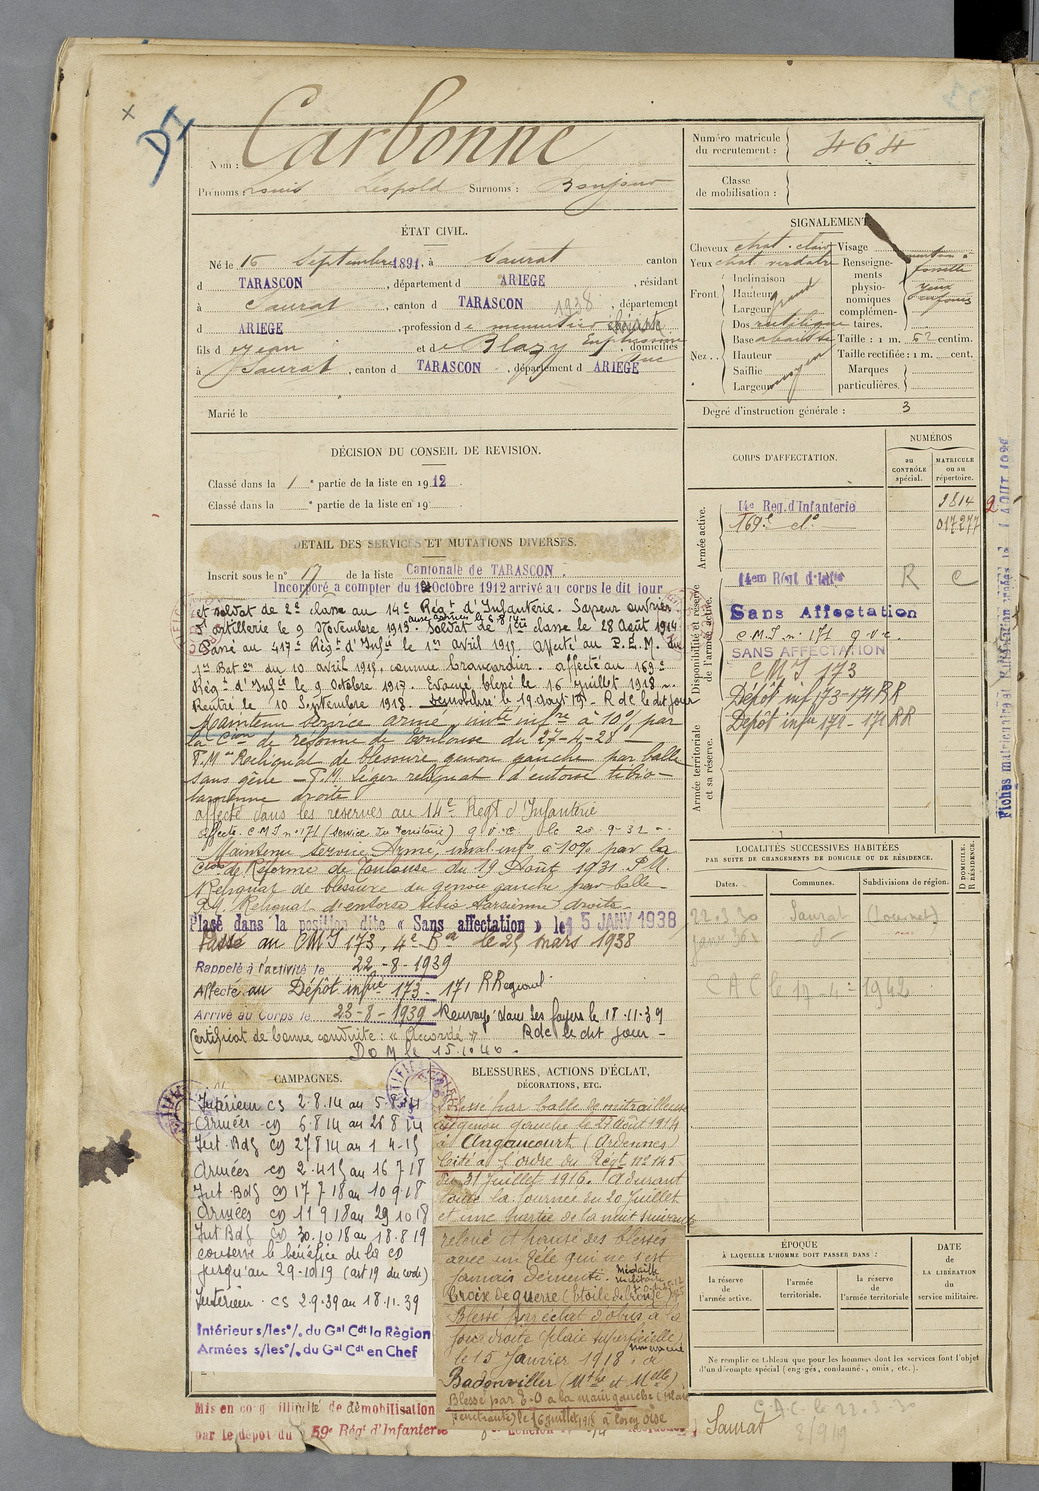 D I
Nom : Carbonne
Prénoms : Louis Léopold Surnoms : Bonjour
Numéro matricule du recrutement : 464
Classe de mobilisation :
ÉTAT CIVIL.
Né le 16 Septembre 1891, à Saurat canton
d TARASCON, département d ARIEGE, résidant
à Saurat, canton d TARASCON, département
d ARIEGE, profession de menuisier
fils d Jean et de Blazy Euphrosine, domiciliés
à Saurat, canton d TARASCON, département d ARIEGE
Marié le
SIGNALEMENT
Cheveux chat. clair Visage
Yeux chat. verdatre Renseigne-
Inclinaison ments
Front Hauteur grand physio-
Largeur nomiques
Dos rectiligne complémen- taires.
fossette
Base abaissée Taille : 1 m. 62 centim.
Nez Hauteur Taille rectifiée : 1 m. cent.
Saillie moyen Marques
Largeur particulières.
Degré d'instruction générale : 3
DÉCISION DU CONSEIL DE REVISION.
Classé dans la 1e partie de la liste en 1912.
Classé dans la e partie de la liste en 19
DÉTAIL DES SERVICES ET MUTATIONS DIVERSES.
Inscrit sous le n° 17 de la liste Cantonale de TARASCON.
Incorporé a compter du Octobre 1912 arrivé au corps le dit jour
et soldat de 2e classe au 14e Régt d'Infanterie. Sapeur ouvrier
d'artillerie le 9 Novembre 1913. Soldat de 1ère classe le 28 Août 1914
Passé au 417e Régt d'Infie le 1er avril 1915 affecté au P.E.M. du
1er Baton du 10 avril 1915, comme brancardier. affecté au 169e
Régt d'Infie le 9 Octobre 1917. Evacué blessé le 16 juillet 1918.
Rentré le 10 Septembre 1918. Démobilisé le 19 août 191 - R de le dit jour
Maintenu Service armé, inapte infre à 10% par
la Cion de réforme de Toulouse du 27-4-28
P.M. Reliquat de blessure genou gauche par balle
sans gêne - P.M. Léger reliquat d'entorse tibio-
tarsienne droite.
affecté dans les réserves au 14e Régt d'Infanterie
affecté C M I n° 171 (service du Territoire) q.v.c. le 20-9-32
Maintenu Service Armé, inval. infre à 10% par la
Cion de Réforme de Toulouse du 19 Août 1931 P.M.
Reliquat de blessure du genou gauche par balle
P.M. Reliquat d'entorse tibio tarsienne droite
Placé dans la position dite « Sans affectation » le 15 JANV 1938
Passé au CMI 173, 4e Bn le 25 mars 1938
Rappelé à l'activité le 22-8-1939
Affecté au Dépôt infie 173 - 171 R Regional
Arrivé au Corps le 23-8-1939 Renvoyé dans ses foyers le 18.11.39
Certificat de bonne conduite : « Accordé » R de le dit jour -
D O M le 15.10.40.
CORPS D'AFFECTATION.
NUMÉROS
au CONTRÔLE spécial.
MATRICULE ou au répertoire.
Armée active.
14e Reg. d'Infanterie 2614
169e do 017277
Disponibilité et réserve de l'armée active.
14em Rént d'Infie R C
Sans Affectation
C.M.I. n° 171 q.v.c.
SANS AFFECTATION
C M I 173
Dépôt inf 173-171 RR
Armée territoriale et sa réserve.
Dépôt infie 171 - 171 RR
LOCALITÉS SUCCESSIVES HABITÉES
PAR SUITE DE CHANGEMENTS DE DOMICILE OU DE RÉSIDENCE.
Dates. Communes. Subdivisions de région. D DOMICILE. R RÉSIDENCE.
22.3.30 Saurat
do
C A C le 17-4-1942
CAMPAGNES.
Intérieur CS 2-8-14 au 5-8-14
Armées CD 6-8-14 au 26 8 14
Int. Bdg CD 27 8 14 au 1 4-15
Armées CD 2-4 15 au 16 7 18
Int. Bdg CD 17 7 18 au 10 9 18
Armées CD 11 9 18 au 29 10 18
Int Bdg CD 30.10 18 au 18.8 19
conserve le bénéfice de la CD
jusqu'au 29-10 19 (art 19 du code)
Intérieur CS 2-9-39 au 18.11.39
Intérieur s/les°/. du Gal Cdt la Région
Armées s/les°/. du Gal Cdt en Chef
BLESSURES, ACTIONS D'ÉCLAT,
DÉCORATIONS, ETC.
Blessé par balle de mitrailleuse
au genou gauche le 27 août 1914
à Angecourt (Ardennes)
Cité à l'ordre du Régt n° 145
du 31 juillet 1916. A durant
toute la journée du 20 juillet
et une partie de la nuit suivante
relevé et pansé des blessés
avec un zèle qui ne s'est
jamais démenti. Médaille militaire
Croix de guerre (étoile de bronze)
Blessé par éclat d'obus à la
joue droite (plaie superficielle)
le 15 Janvier 1918 à
Badonviller (Mthe et Mlle)
Blessé par E.O à la main gauche (plaie
pénétrante) le 16 juillet 1918 à Oise
ÉPOQUE
À LAQUELLE L'HOMME DOIT PASSER DANS :
la réserve de l'armée active.
l'armée territoriale.
la réserve de l'armée territoriale
DATE de LA LIBÉRATION du service militaire.
Ne remplir ce tableau que pour les hommes dont les services font l'objet
d'un décompte spécial (engagés, condamnés, omis, etc.).
Mis en congé illimité de démobilisation
par le dépôt du 59e Régt d'Infanterie
Saurat
C.A.C. le 22.3.30